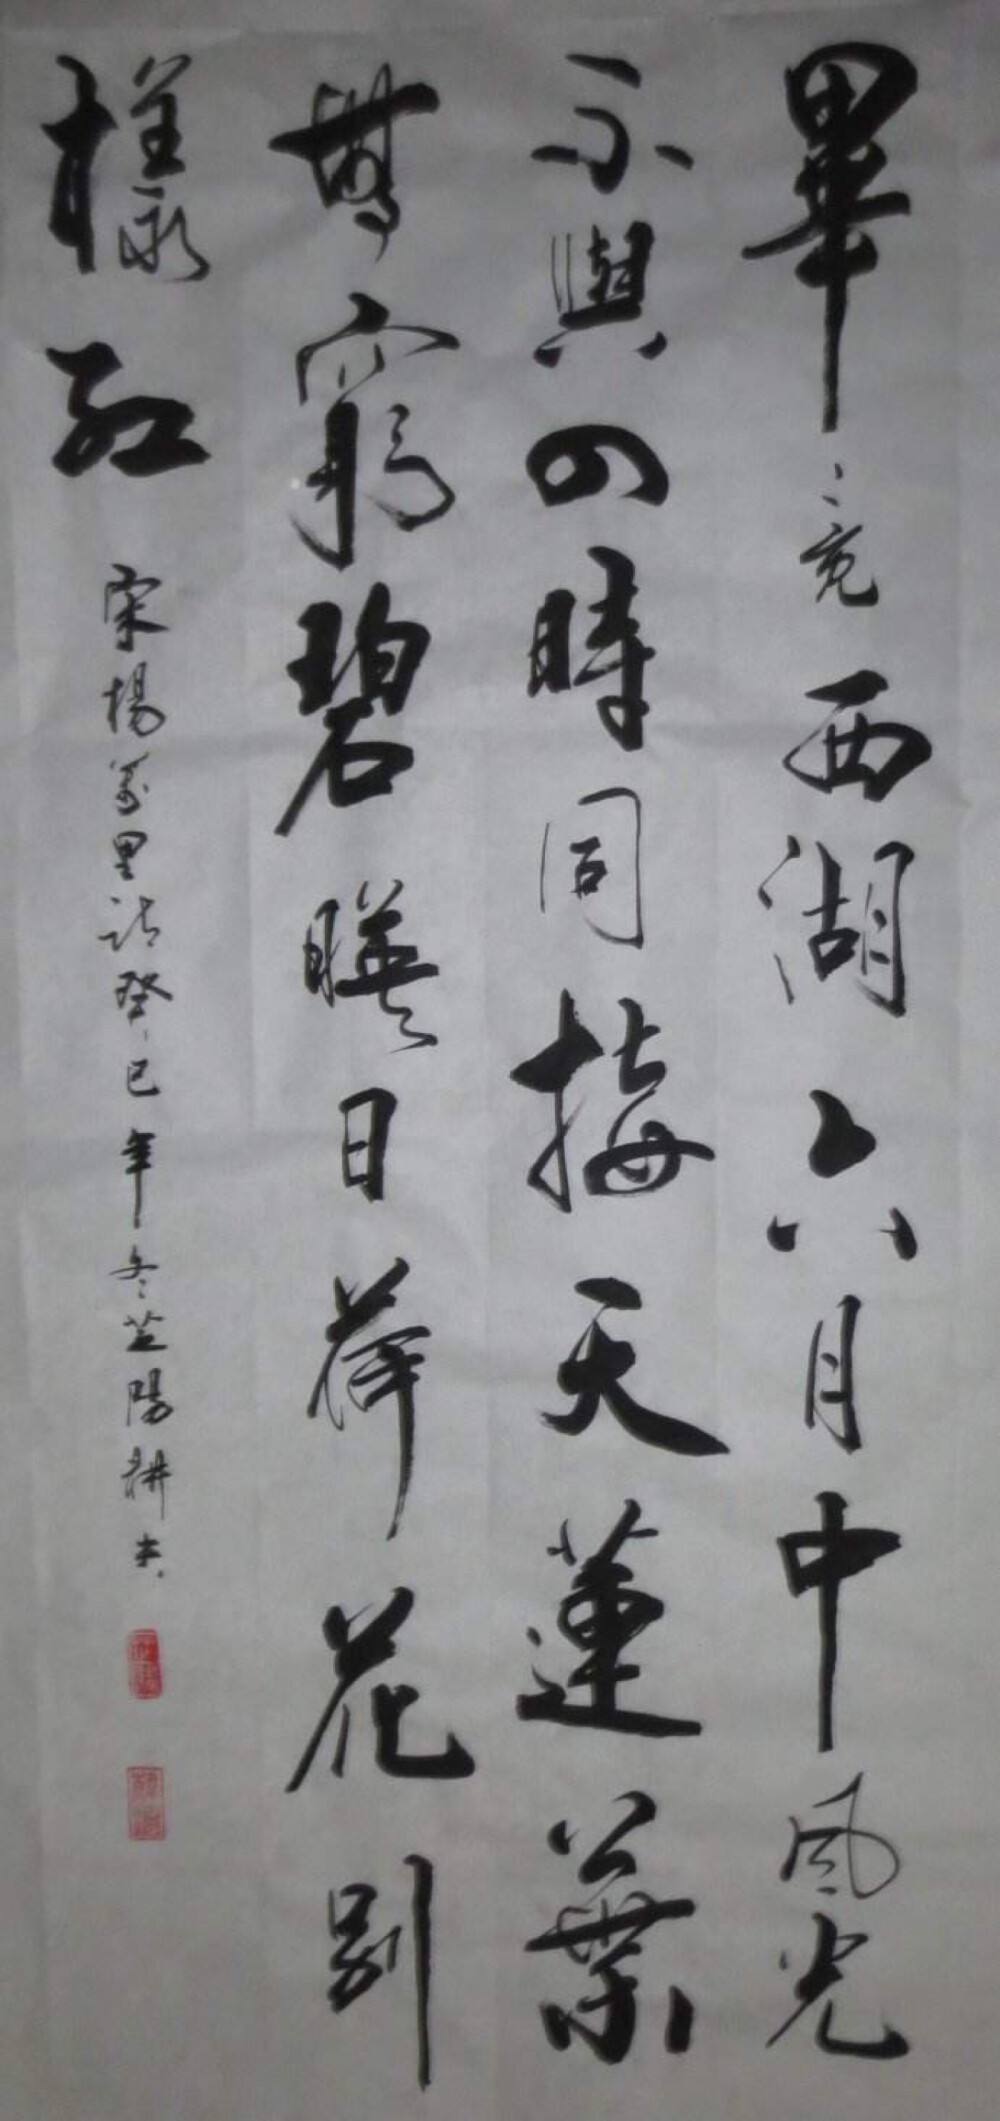 畢竟西湖六月中風光
不與四時同接天蓮葉
無窮碧映日荷花別
樣紅
宋楊萬里詩癸巳年冬芝陽耕夫